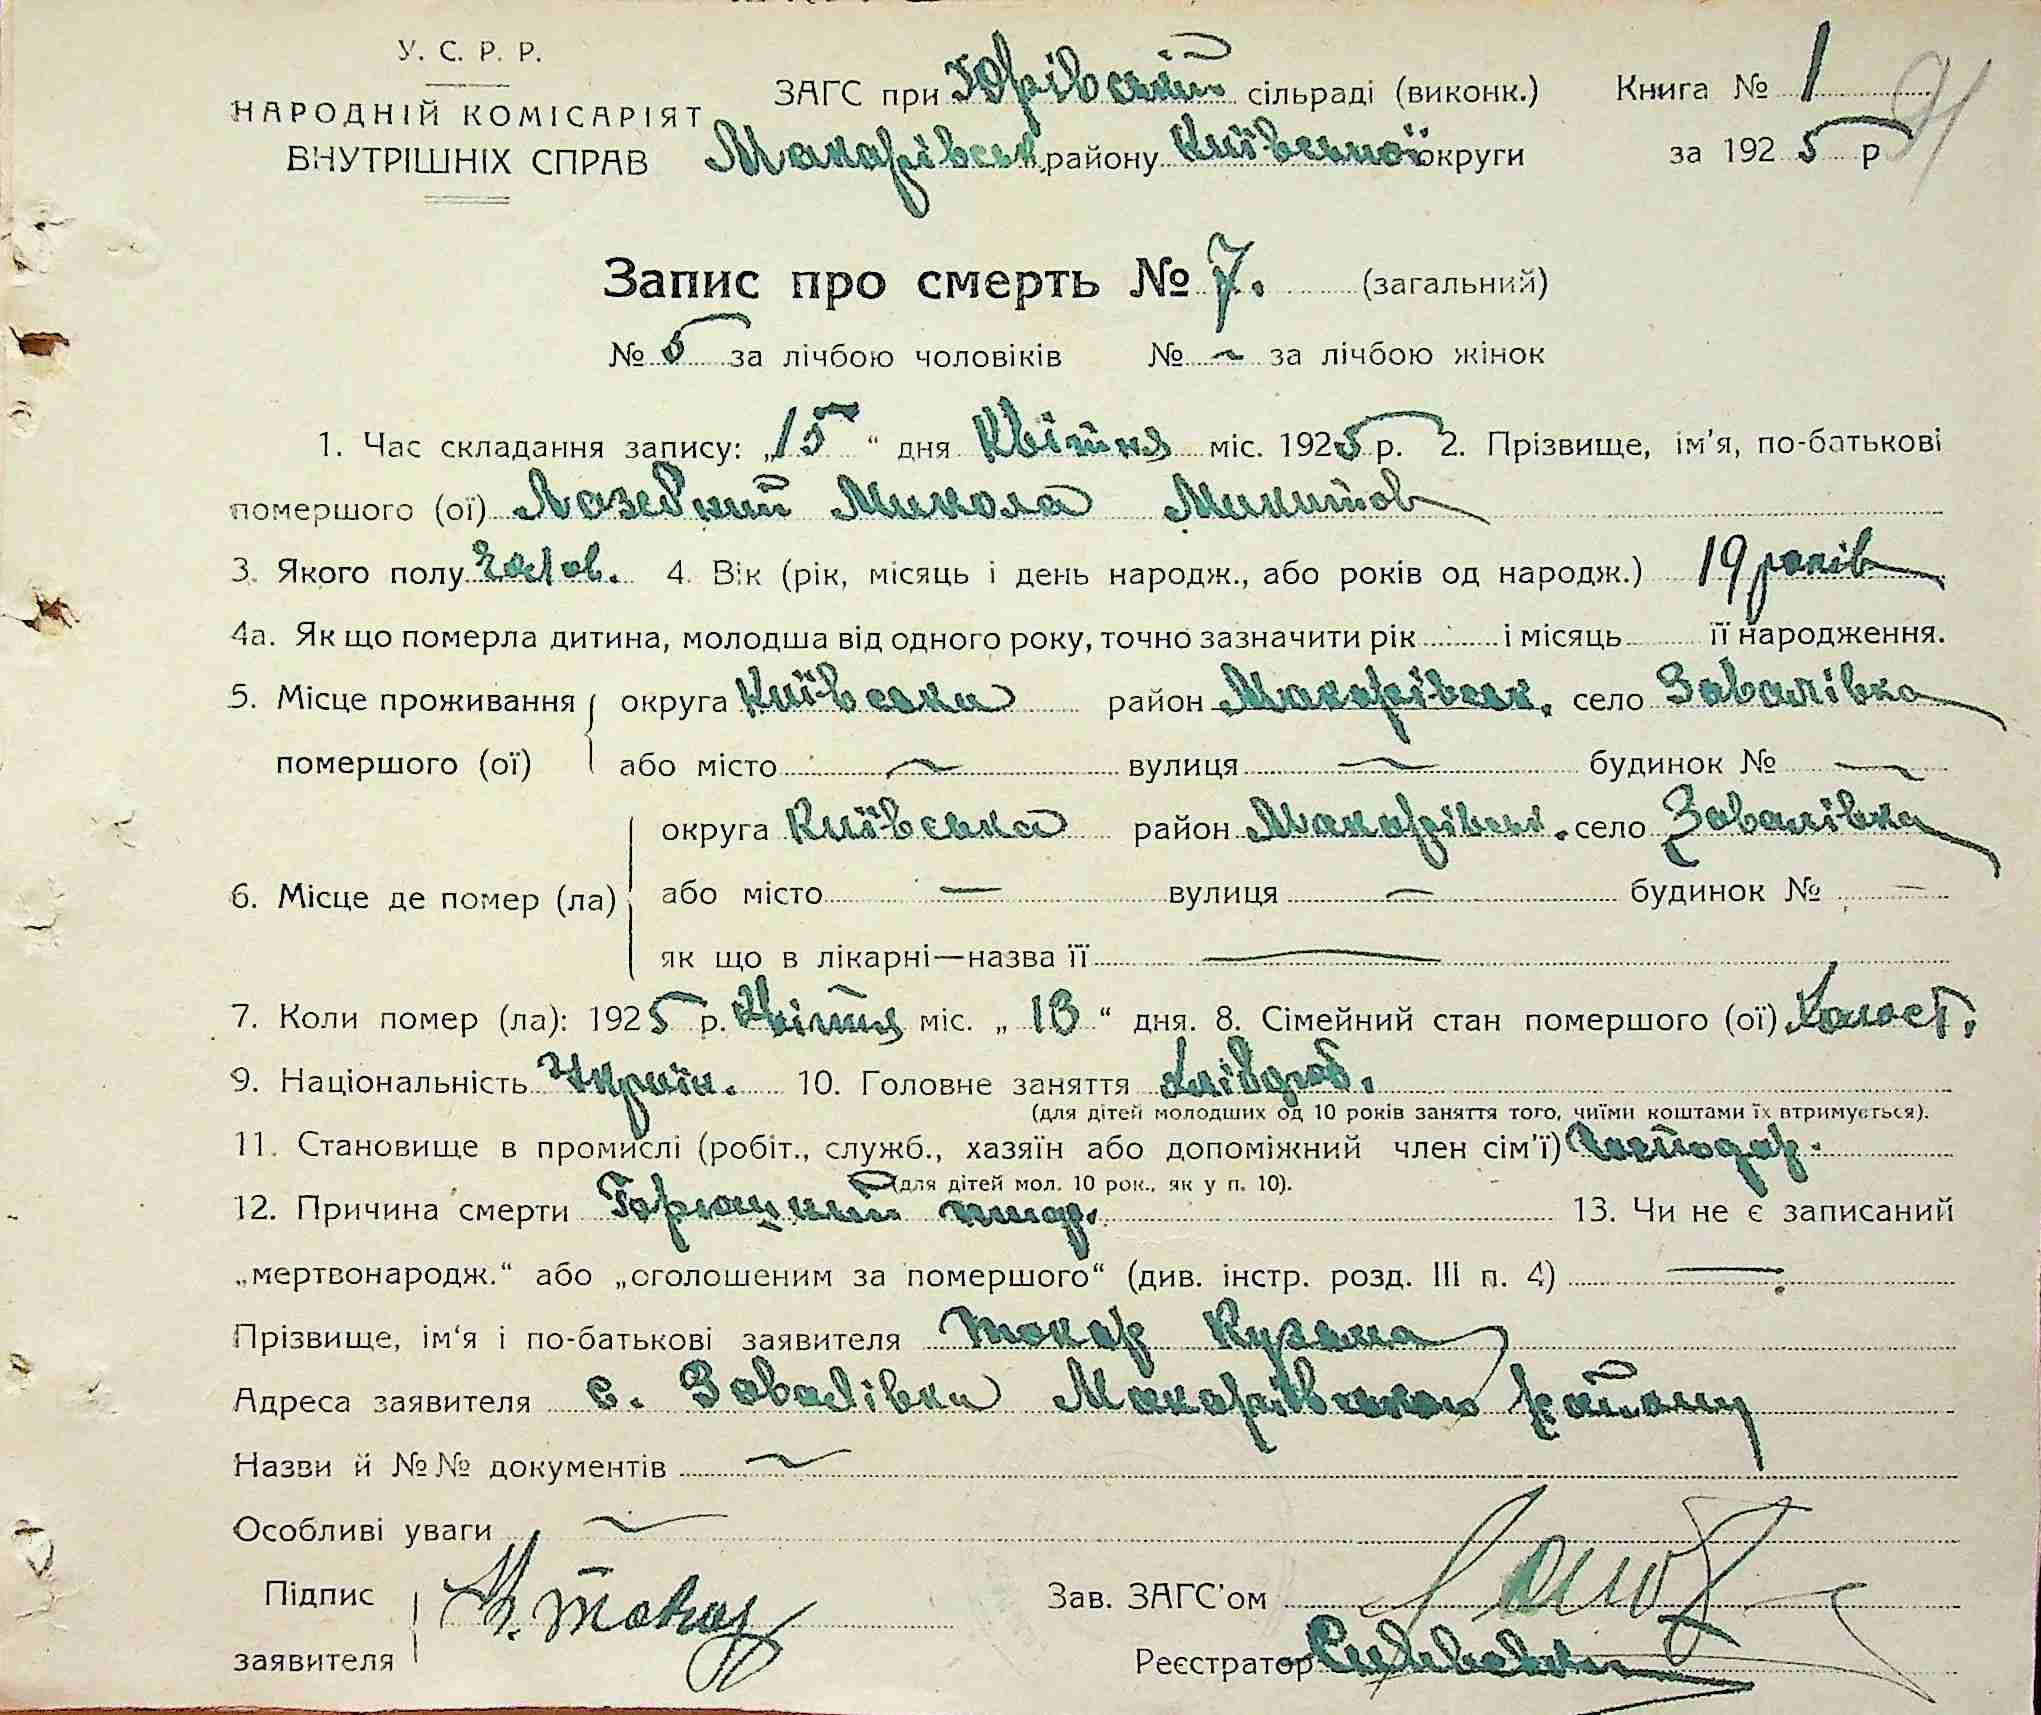 У. С. Р. Р.
НАРОДНІЙ КОМІСАРІЯТ
ВНУТРІШНІХ СПРАВ
ЗАГС при Юрівській сільраді (виконк.)
Макарівськ. району Київської округи
Книга № 1
за 1925 р
91
Запис про смерть № 7. (загальний)
№ 5 за лічбою чоловіків № ~ за лічбою жінок
1. Час складання запису: „15“ дня Квітня міс. 1925 р. 2. Прізвище, ім'я, по-батькові
помершого (ої) Лазебний Микола Микитов
3. Якого полу чолов. 4. Вік (рік, місяць і день народж., або років од народж.) 19 років
4а. Як що померла дитина, молодша від одного року, точно зазначити рік і місяць її народження.
5. Місце проживання помершого (ої) округа Київська район Макарівськ. село Завалівка
або місто ~ вулиця ~ будинок № ~
6. Місце де помер (ла) округа Київська район Макарівськ. село Завалівка
або місто — вулиця — будинок № —
як що в лікарні—назва її —
7. Коли помер (ла): 1925 р. Квітня міс. „13“ дня. 8. Сімейний стан помершого (ої) Холост.
9. Національність Україн. 10. Головне заняття хлівороб.
(для дітей молодших од 10 років заняття того, чиїми коштами їх втримується).
11. Становище в промислі (робіт., служб., хазяїн або допоміжний член сім'ї) господар.
(для дітей мол. 10 рок., як у п. 10).
12. Причина смерти 13. Чи не є записаний
„мертвонародж.“ або „оголошеним за помершого“ (див. інстр. розд. III п. 4) —
Прізвище, ім'я і по-батькові заявителя Токар Кузьма
Адреса заявителя с. Завалівка Макарівського району
Назви й №№ документів ~
Особливі уваги ~
Підпис заявителя К. Токар
Зав. ЗАГС'ом
Реєстратор